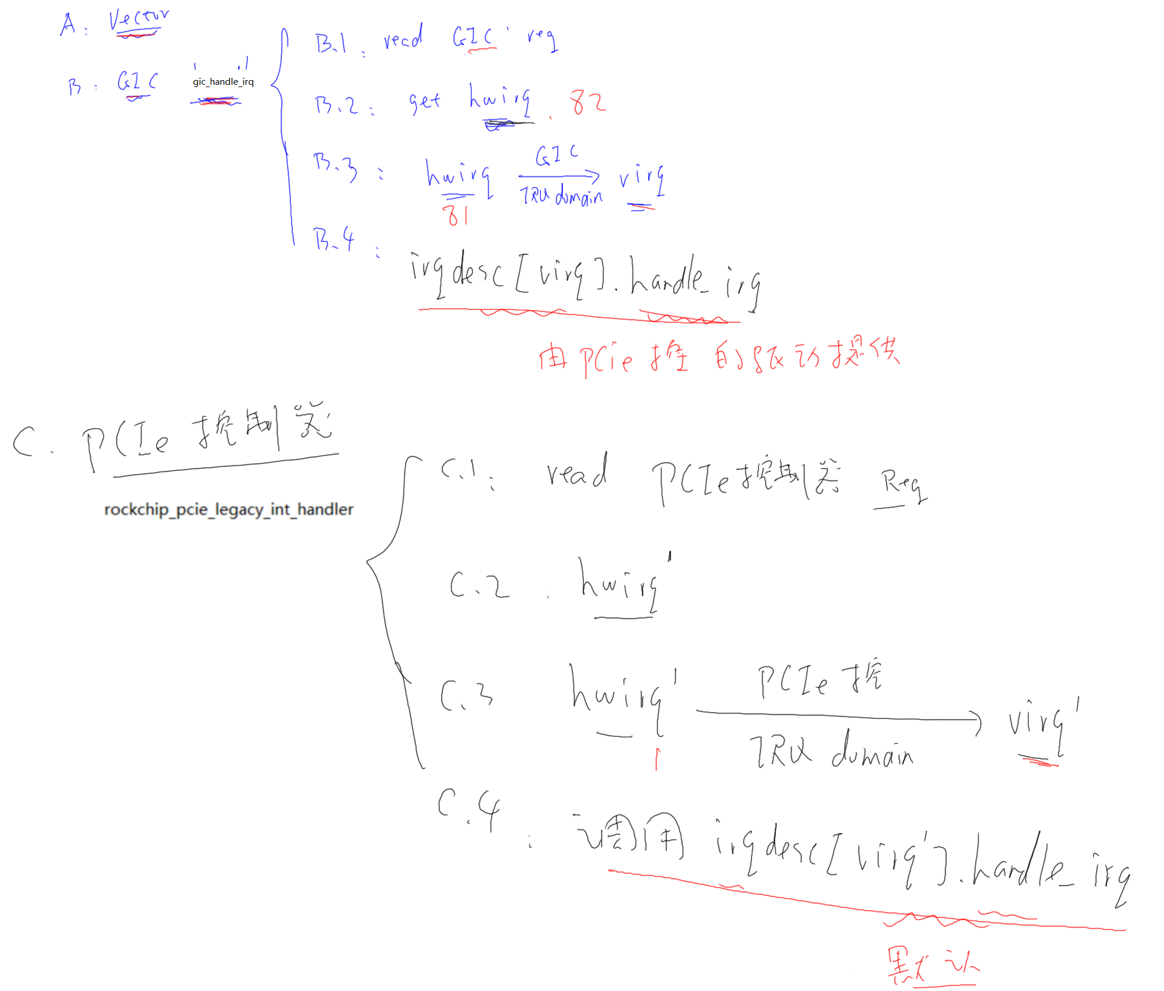 A: Vector
B: GIC 'gic_handle_irq'
B.1: read GIC reg
B.2: get hwirq. 82
B.3: hwirq GIC IRQ domain virq
81
B.4:
irqdesc[virq].handle_irq
由PCie控的驱动提供
C. PCIe控制器
rockchip_pcie_legacy_int_handler
C.1: read PCIe控制器 Reg
C.2. hwirq'
C.3 hwirq' PCIe控 IRQ domain virq'
1
C.4: 调用 irqdesc[virq'].handle_irq
默认